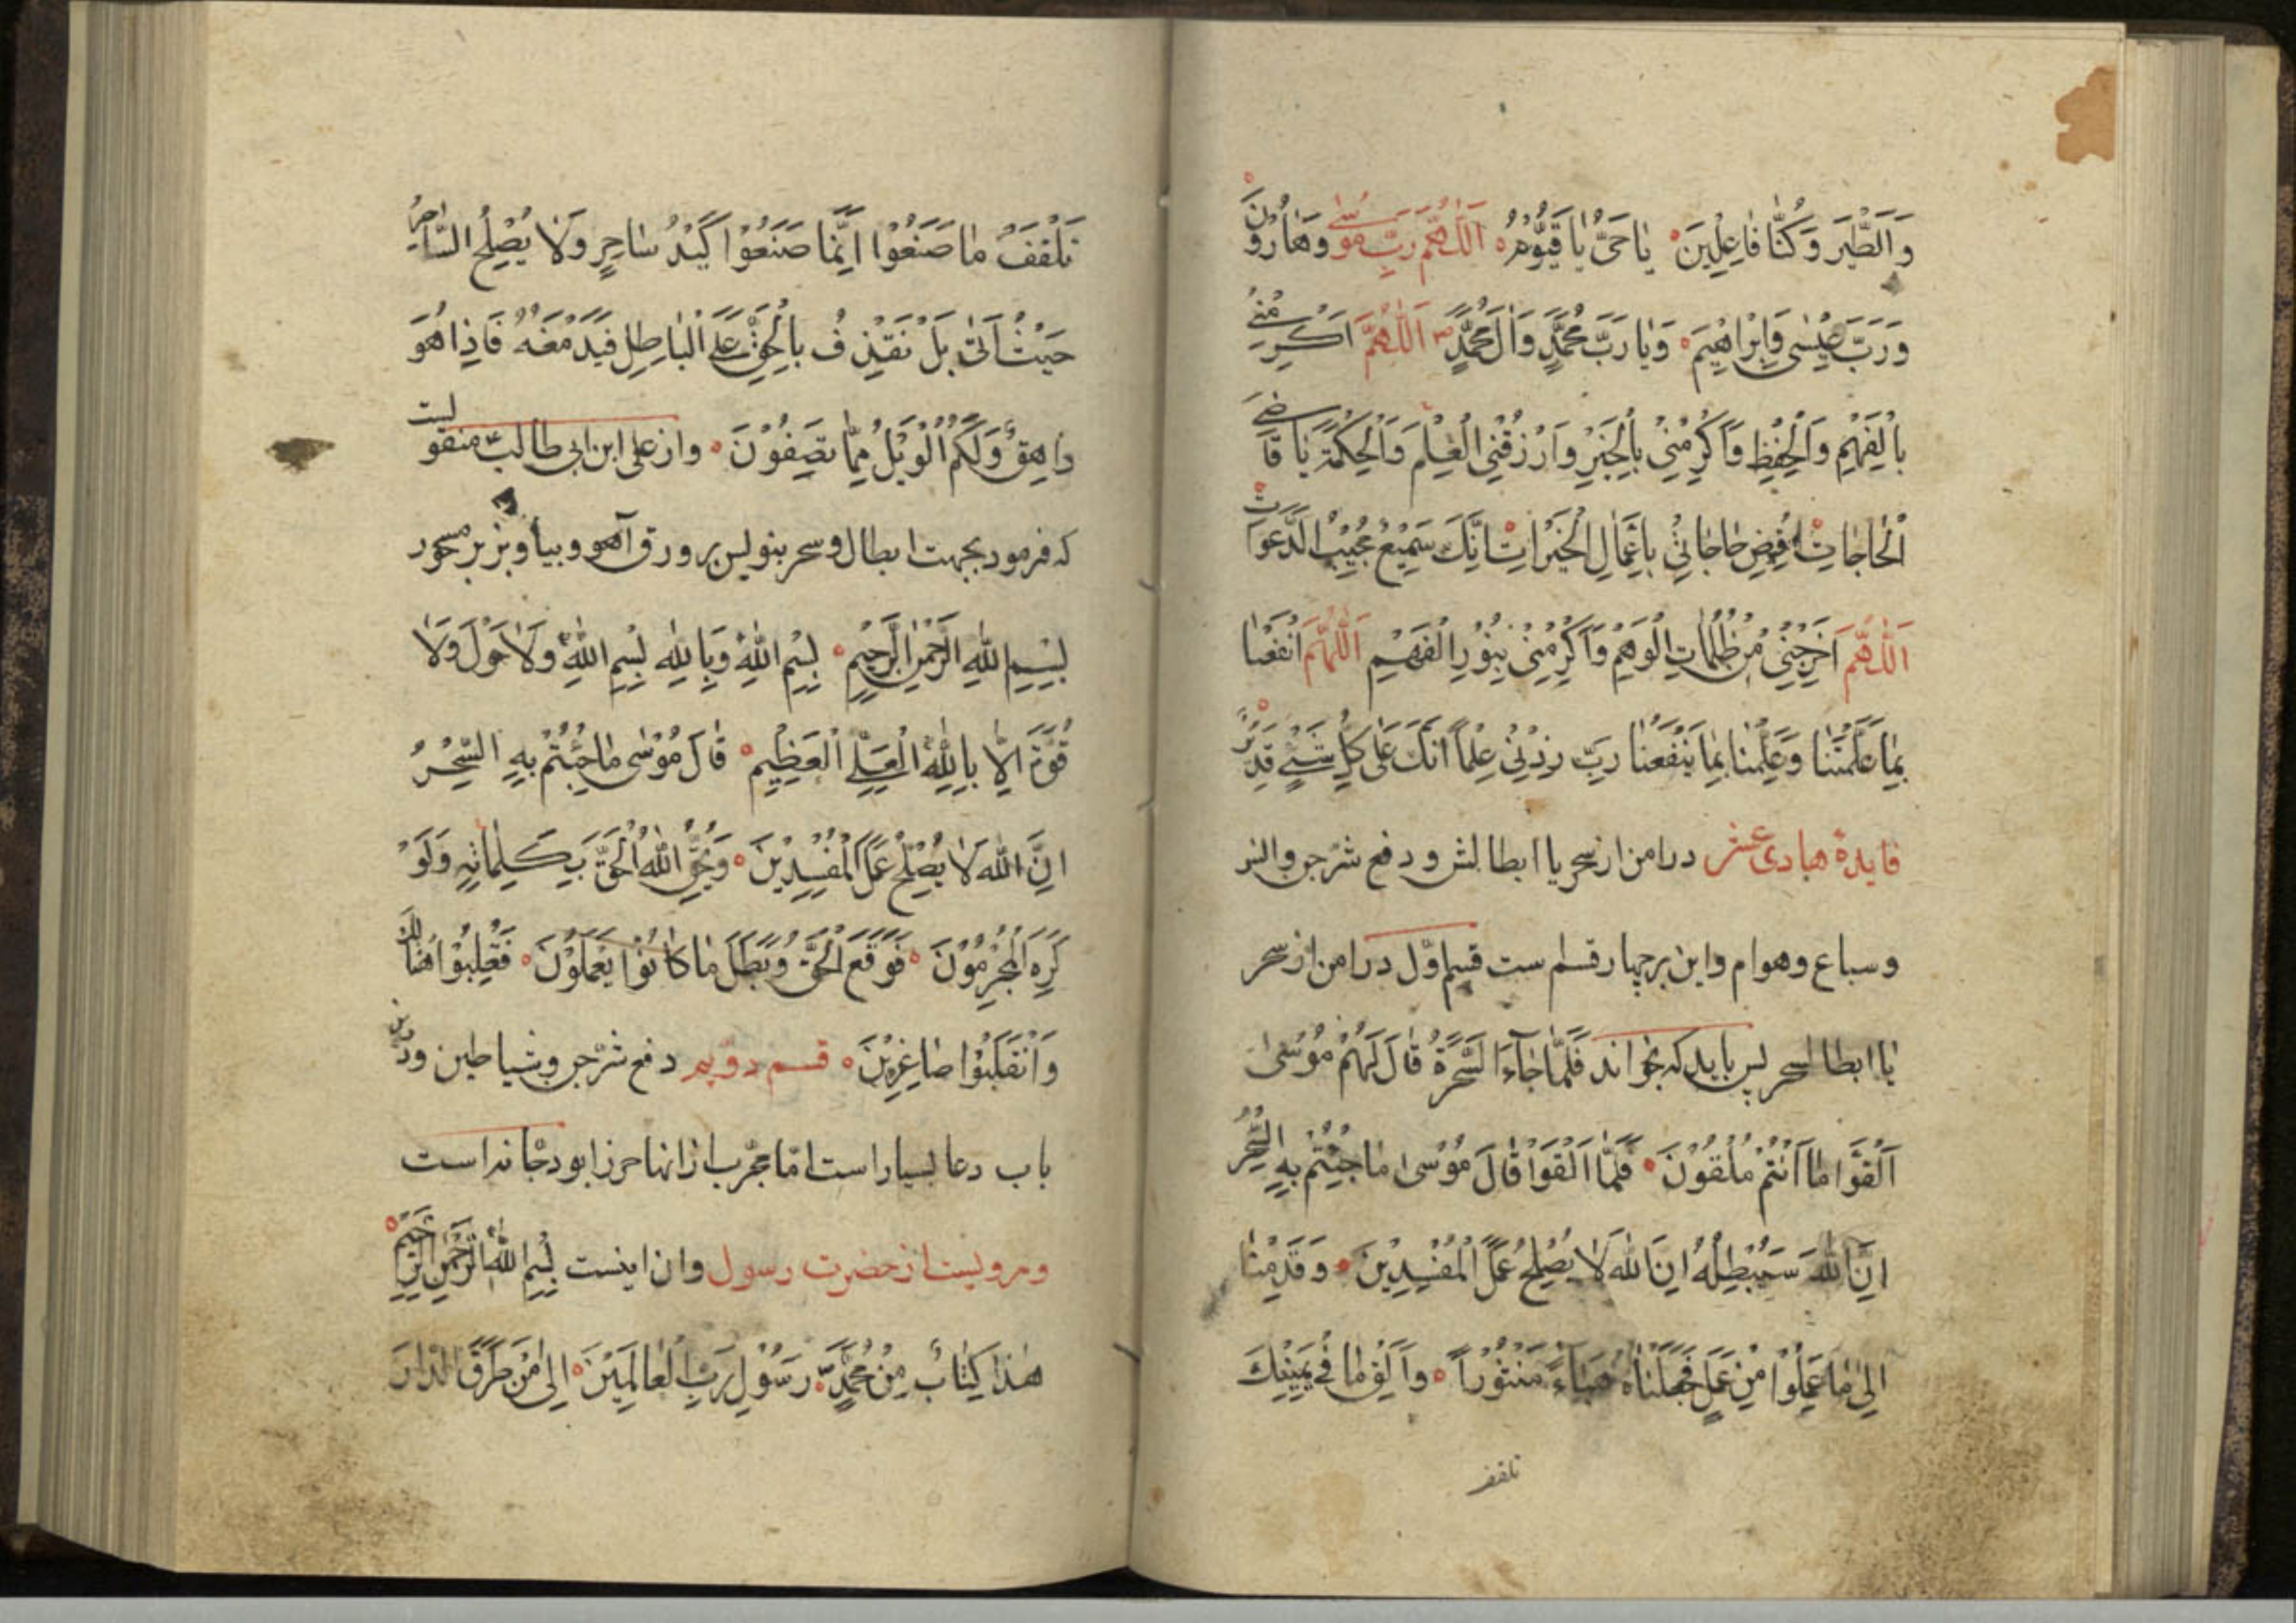 وَالطَّیرَ وَكُنَّا فَاعِلِينَ یَا حَیُّ یَا قَیُّومُ اَللّٰهُمَّ رَبِّ مُوسٰی وَهَارُونَ
وَرَبَّ عِیْسٰی وَاِبْرَاهِیْمَ وَیَا رَبَّ مُحَمَّدٍ وَاٰلِ مُحَمَّدٍ ص اَللّٰهُمَّ اَكْرِمْنِی
بِالْفَهْمِ وَالْحِفْظِ وَاَكْرِمْنِی بِالْخَیْرِ وَارْزُقْنِی الْعِلْمَ وَالْحِكْمَةَ یَا قَاضِیَ
الْحَاجَاتِ اِقْضِ حَاجَاتِیْ بِاَعْمَالِ الْخَیْرَاتِ اِنَّكَ سَمِیْعٌ مُجِیْبُ الدَّعَوَاتِ
اَللّٰهُمَّ اَخْرِجْنِیْ مِنْ ظُلُمَاتِ الْوَهْمِ وَاَكْرِمْنِیْ بِنُوْرِ الْفَهْمِ اَللّٰهُمَّ انْفَعْنَا
بِمَا عَلَّمْتَنَا وَعَلِّمْنَا بِمَا یَنْفَعُنَا رَبِّ زِدْنِیْ عِلْمًا اِنَّكَ عَلٰی كُلِّ شَیْءٍ قَدِیْرٌ
فایدهٔ هادی عشر درامن از سحر یا ابطالش و دفع شرّ جن والنر
و سباع و هوام و این بر چهار قسم ست قسم اوّل درامن از سحر
یا ابطال سحر پس باید كه بخواند فَلَمَّا جَآءَ السَّحَرَةُ قَالَ لَهُمْ مُوْسٰی
اَلْقُوْا مَا اَنْتُمْ مُلْقُوْنَ فَلَمَّا اَلْقَوْا قَالَ مُوْسٰی مَا جِئْتُمْ بِهِ السِّحْرُ
اِنَّ اللهَ سَیُبْطِلُهُ اِنَّ اللهَ لَا یُصْلِحُ عَمَلَ الْمُفْسِدِیْنَ وَقَدِمْنَا
اِلٰی مَا عَمِلُوْا مِنْ عَمَلٍ فَجَعَلْنَاهُ هَبَاءً مَنْثُوْرًا وَاَلْقِ مَا فِیْ یَمِیْنِكَ
تلقف
تَلْقَفْ مَا صَنَعُوْا اِنَّمَا صَنَعُوْا كَیْدُ سَاحِرٍ وَلَا یُصْلِحُ السَّاحِرُ
حَیْثُ اَتٰی بَلْ نَقْذِفُ بِالْحَقِّ عَلَی الْبَاطِلِ فَیَدْمَغُهُ فَاِذَا هُوَ
زَاهِقٌ وَلَكُمُ الْوَیْلُ مِمَّا تَصِفُوْنَ واز علی ابن ابی طالب منقولست
كه فرمود بجهت ابطال وسحر بنویس بر ورق آهو و بیاویز بر مسحور
بِسْمِ اللهِ الرَّحْمٰنِ الرَّحِیْمِ بِسْمِ اللهِ وَبِاللهِ بِسْمِ اللهِ وَلَا حَوْلَ وَلَا
قُوَّةَ اِلَّا بِاللهِ الْعَلِیِّ الْعَظِیْمِ قَالَ مُوْسٰی مَا جِئْتُمْ بِهِ السِّحْرُ
اِنَّ اللهَ لَا یُصْلِحُ عَمَلَ الْمُفْسِدِیْنَ وَیُحِقُّ اللهُ الْحَقَّ بِكَلِمَاتِهِ وَلَوْ
كَرِهَ الْمُجْرِمُوْنَ فَوَقَعَ الْحَقُّ وَبَطَلَ مَا كَانُوْا یَعْمَلُوْنَ فَغُلِبُوْا هُنَالِكَ
وَانْقَلَبُوْا صَاغِرِیْنَ قسم دویم دفع شرّ جن و شیاطین و درین
باب دعا بسیار است امّا مجرّب ازانها حرز ابو دجانه است
ومرویست از حضرت رسول وان اینست بِسْمِ اللهِ الرَّحْمٰنِ الرَّحِیْمِ
هٰذَا كِتَابٌ مِنْ مُحَمَّدٍ رَسُوْلِ رَبِّ الْعَالَمِیْنَ اِلٰی مَنْ طَرَقَ الدَّارَ